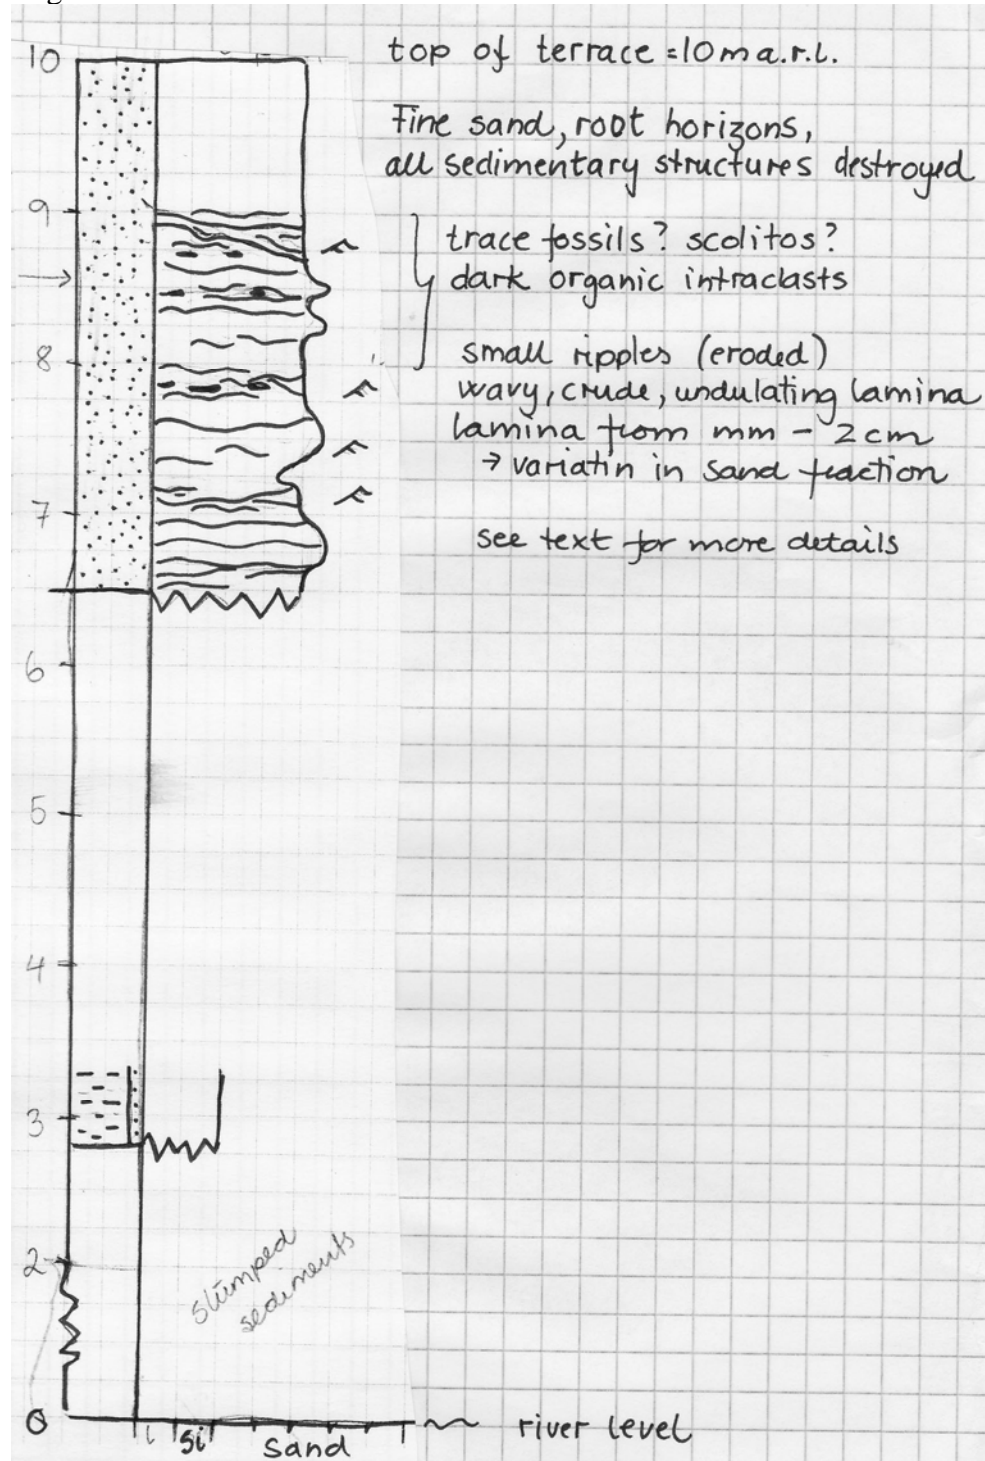 10
top of terrace = 10 m a.r.l.
Fine sand, root horizons,
all sedimentary structures destroyed
9
trace fossils? scolitos?
dark organic intraclasts
8
small ripples (eroded)
wavy, crude, undulating lamina
lamina from mm - 2 cm
→ variatin in sand fraction
7
see text for more details
6
5
4
3
2
slumped
sediments
0
river level
Si
sand